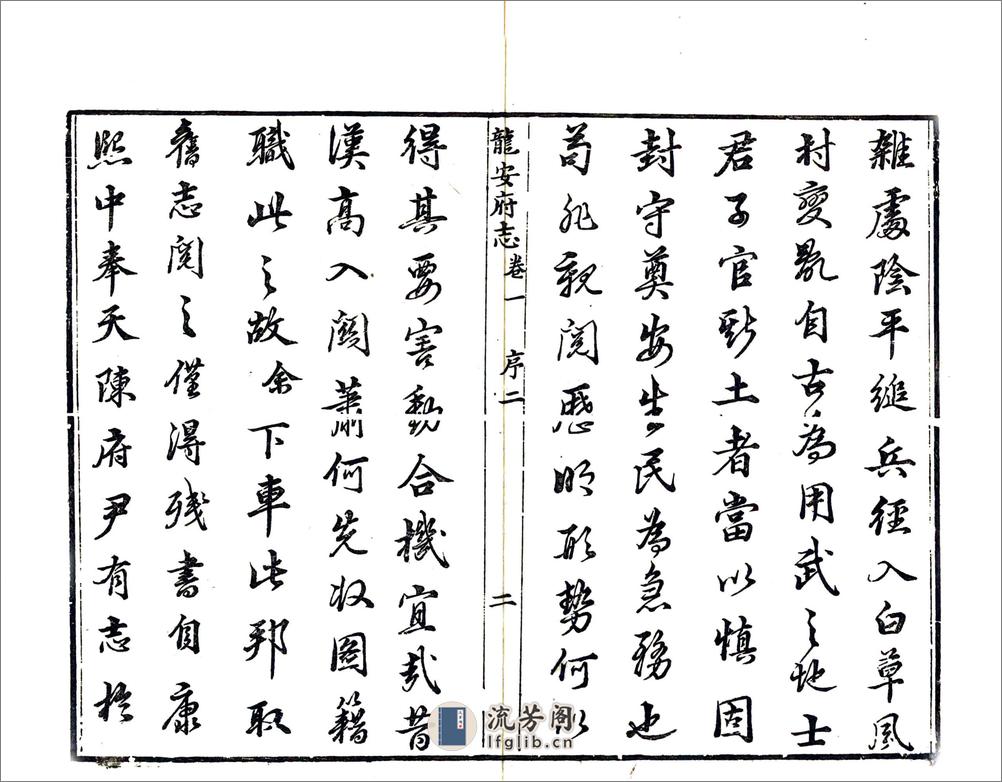 雜處陰平縋兵徑入白草風
村變亂自古為用武之地士
君子官斯土者當以慎固
封守奠安生民為急務也
苟非親閱歷明形勢何以
龍安府志 卷一 序二 二
得其要害動合機宜哉昔
漢高入關蕭何先收圖籍
職此之故余下車此邦取
舊志閱之僅得殘書自康
熙中奉天陳府尹有志於
流芳阁
lfglib.cn